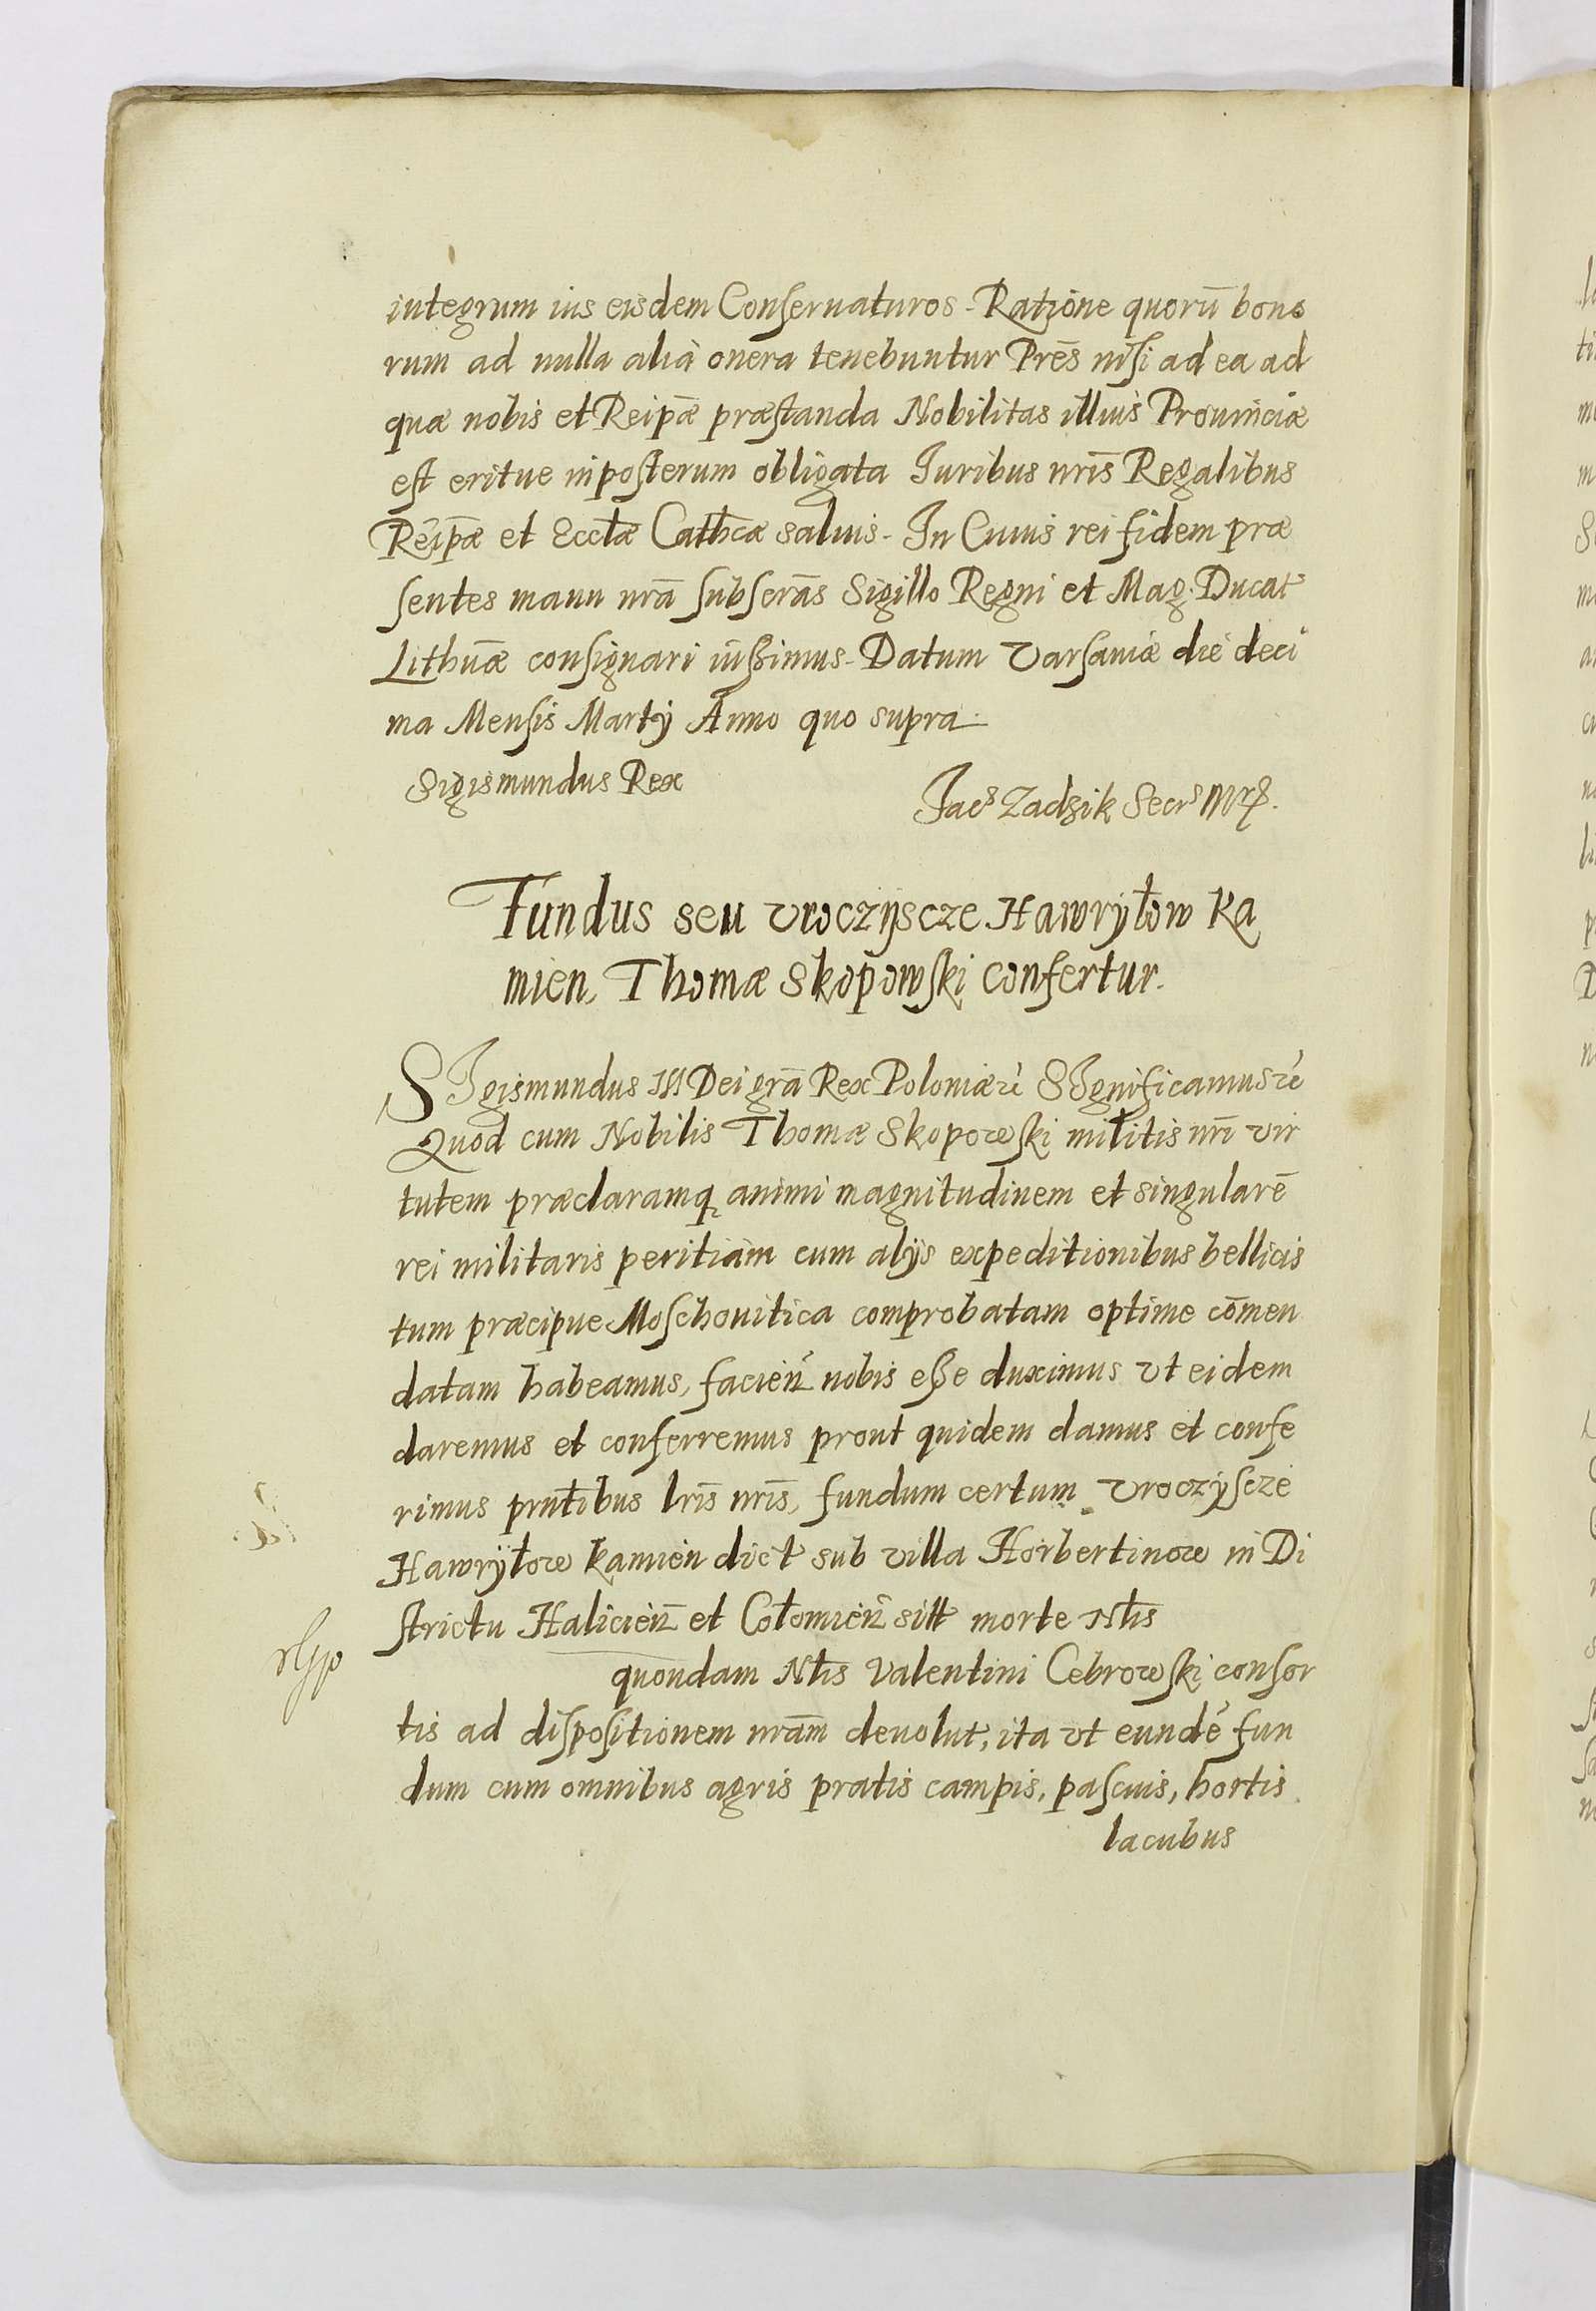 integrum ius eisdem Conseruaturos - Ratione quorū bono
rum ad nulla alia onera tenebuntur Prēs nisi ad ea ad
quæ nobis et Reipæ præstanda Nobilitas illius Prouinciæ
est eritue inposterum obligata Juribus nrīs Regalibus
Reipæ et Ecctæ Cathcæ saluis - In Cuius rei fidem præ
sentes manu nrā subscrās Sigillo Regni et Mag. Ducat
Lithuæ consignari iussimus - Datum Varsauiæ die deci
ma Mensis Martij Anno quo supra.
Sigismundus Rex
Jacs Zadzik Secrs
Fundus seu vroczijscze Hawryłow Ka
mien, Thomæ Skopowski confertur.
SIgismundus III Dei grā Rex Poloniæ rć SIgnificamus rć
Quod cum Nobilis Thomæ Skopowski militis nrī vir
tutem præclaramq animi magnitudinem et singularē
rei militaris peritiam cum alijs expeditionibus bellicis
tum præcipue Moschouitica comprobatam optime cōmen
datam habeamus, facień nobis esse duximus vt eidem
daremus et conferremus prout quidem damus et confe
rimus pntībus lrīs nrīs, fundum certum vroczyscze
Hawryłow Kamien dict sub villa Horbertinow in Di
strictu Halicień et Cołomień sitt morte Ntis
quondam Ntis Valentini Cebrowski consor
tis ad dispositionem nrām deuolut, ita vt eundē fun
dum cum omnibus agris pratis campis, pascuis, hortis
lacubus